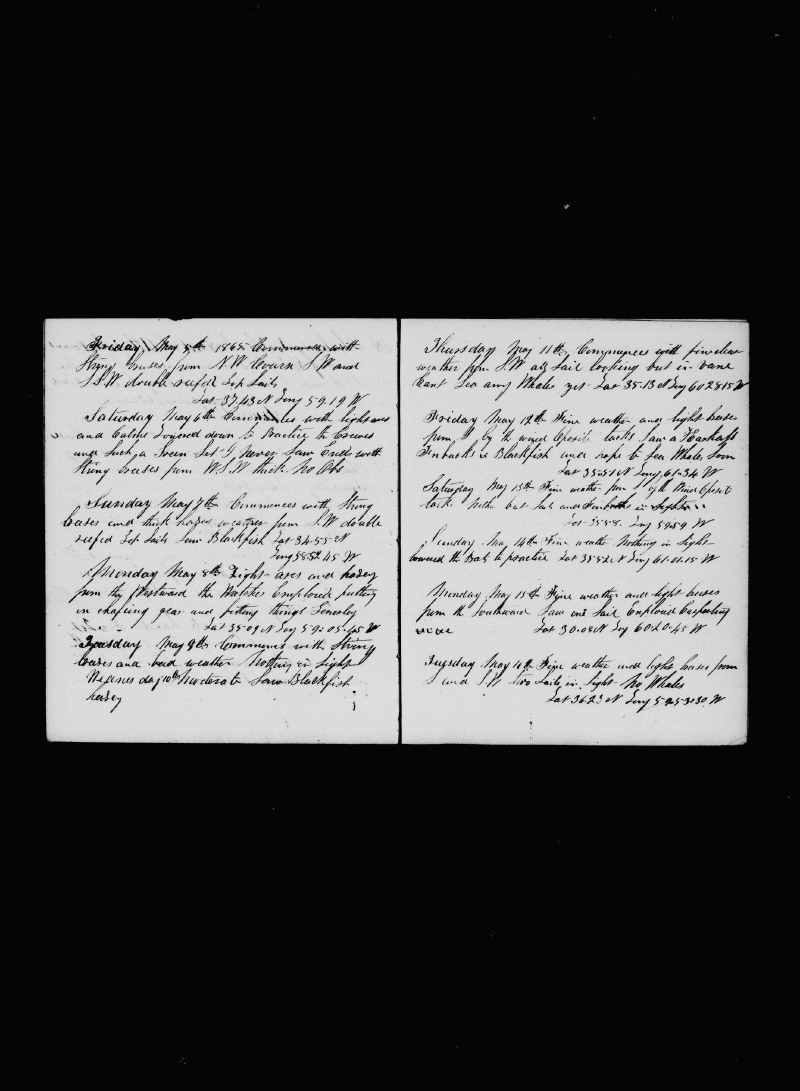 Friday, May 5th 1865 Commences with
Strong breases from N.W Coarse S.W and
S.S.W double reefd Top Sails
Lat 37,43 N Long 59.19 W
Saturday May 6th Commences with light ares
and Calms down to Practice the Crewes
and such a Green Set I Never Saw Ends with
Strong breases from W.S.W thick No Obs
Sunday May 7th Commences with Strong
bases and thick hazey weather from S.W double
reefed Top Sails Saw Blackfish Lat 34-55 N
Long 58-52 45 W
Monday May 8th Light ares and hazey
from the Eastward the Watches Employed putting
in chafeing gear and fixing things Generley
Lat 35-09 N Long 59-05-45 W
Tuesday May 9th Commences with Strong
bases and bad weather Nothing in Sight
Wednesday 10th Moderate Saw Blackfish
hazey
Thursday May 11th, Commences with fine clear
weather from S.W all Sail looking but in vane
Cant See any Whales yet Lat 35-13 N Long 60 28 15 W
Friday May 12th Fine weather and light bases
from by the wind Oposit tacks Saw a
Finbacks & Blackfish and hope to See Whales Soon
Lat 35-51 N Long 61-34 W
Saturday May 13th Fine weather from S by the Wind Oposit
tack but Sails and Finbacks in Sight
Lat 35 58 Long 59 59 W
Sunday May 14th Fine weather Nothing in Sight
lowered the Boats to practice Lat 35 52 N Long 61-01-15 W
Monday May 15th Fine weather and light bases
from the Southward Saw one Sail Employed
Lat 36-08 N Log 60-20-45 W
Tuesday May 16th Fine weather and light bases from
S and S.W two Sails in Sight No Whales
Lat 36 23 N Long 59-53-30 W